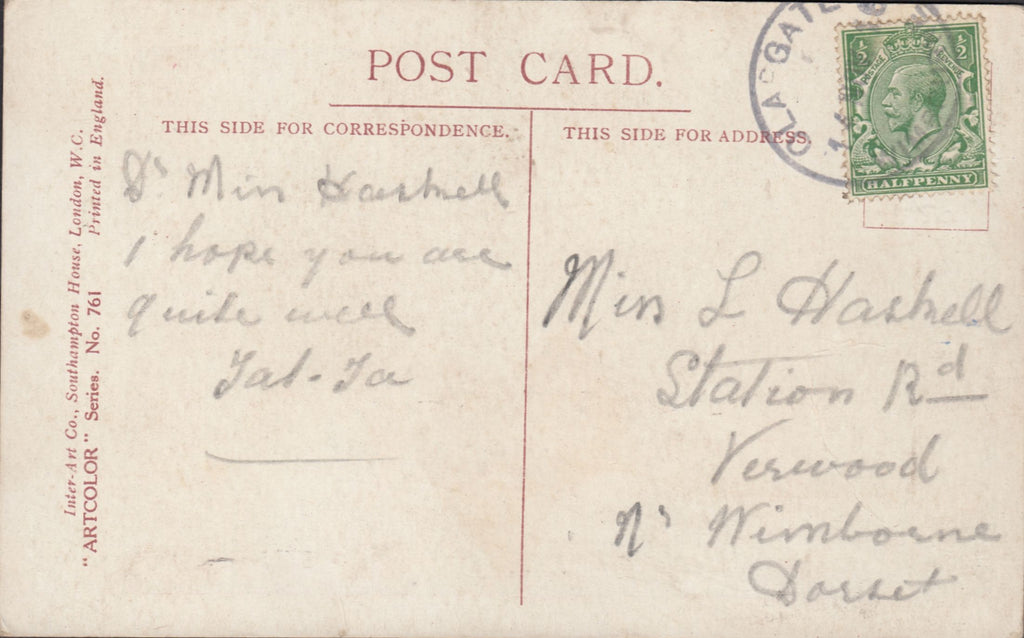 POST CARD.
THIS SIDE FOR CORRESPONDENCE.
THIS SIDE FOR ADDRESS.
Inter-Art Co., Southampton House, London, W.C.
"ARTCOLOR" Series. No. 761 Printed in England.
Dr Miss Haskell
I hope you are
quite well
Tat-Ta
Miss L Haskell
Station Rd
Verwood
Nr Wimborne
Dorset
GATE
½ ½
POSTAGE REVENUE
HALFPENNY